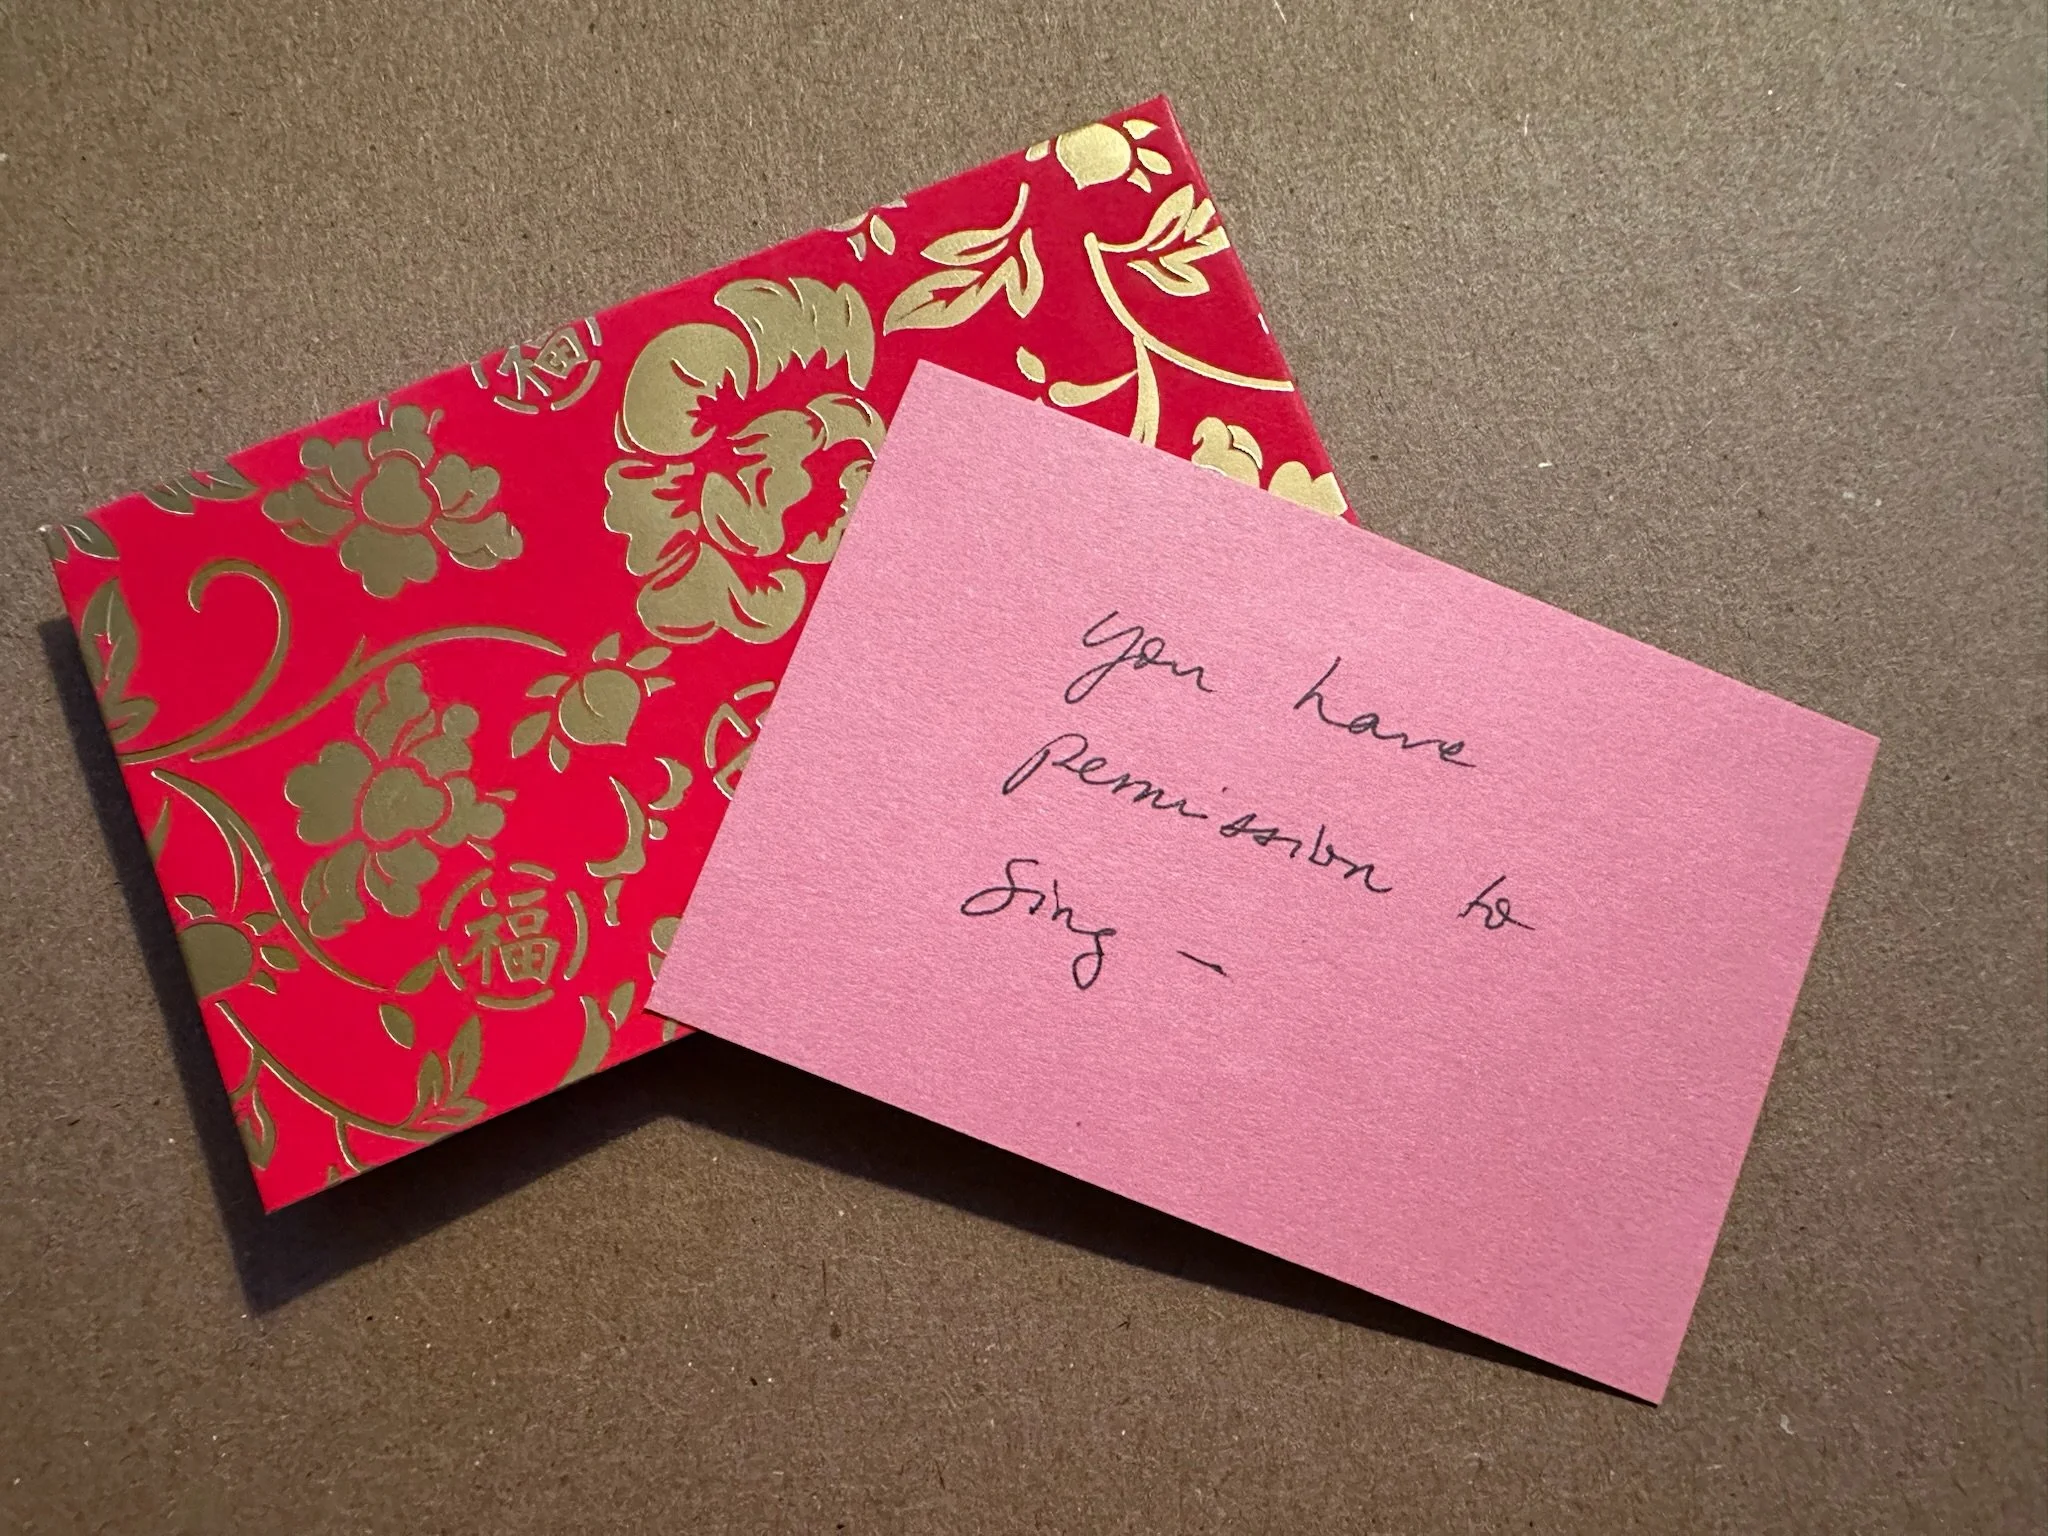 福
福
you have
permission to
Sing -